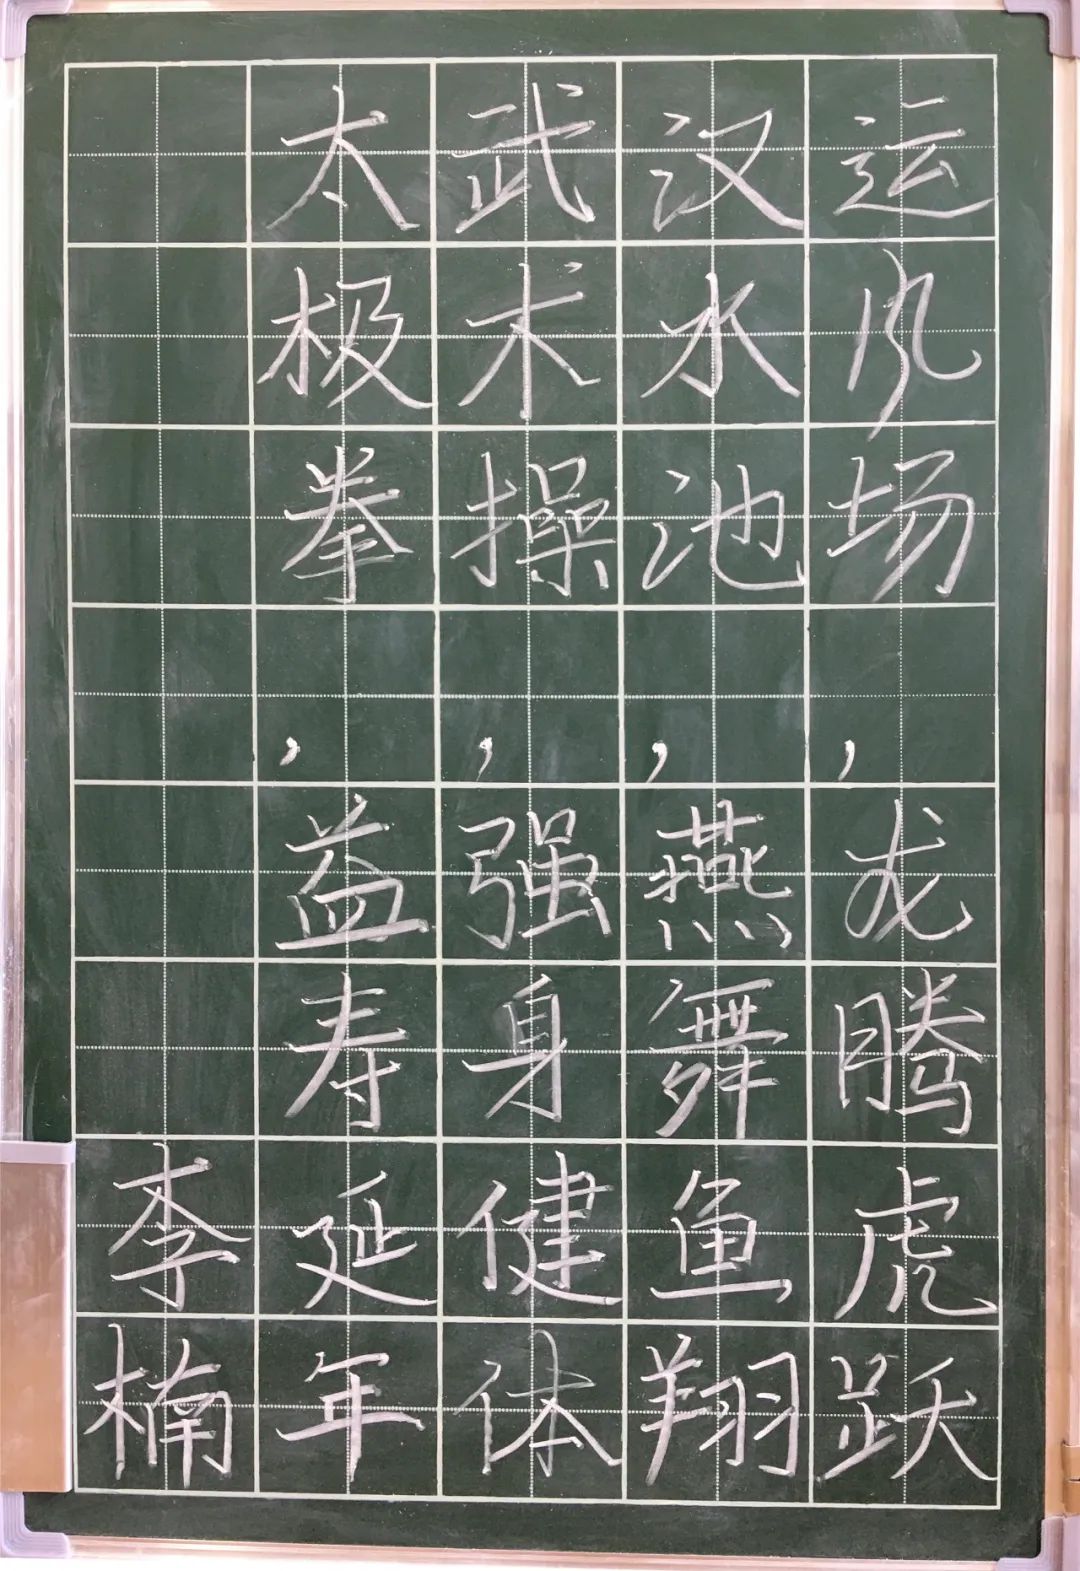 运风场，龙腾虎跃
汉水池，燕舞鱼翔
武术操，强身健体
太极拳，益寿延年
李楠